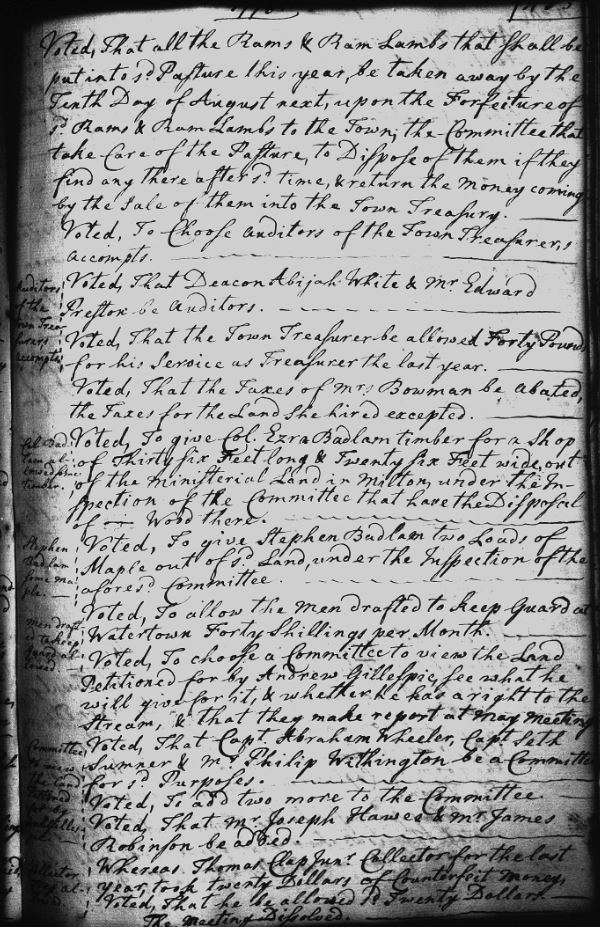 Voted, That all the Rams & Ram Lambs that shall be
put into sd Pasture this year, be taken away by the
Tenth Day of August next, upon the Forfeiture of
sd Rams & Ram Lambs to the Town; the Committee that
take Care of the Pasture, to Dispose of them if they
find any there after sd time, & return the Money coming
by the Sale of them into the Town Treasury.
Voted, To Choose Auditors of the Town Treasurer,s
Accompts.
Auditors
of the
Town Trea-
surers
Accompts
Voted, That Deacon Abijah White & Mr. Edward
Preston be Auditors.
Voted, That the Town Treasurer be allowed Forty Pounds
for his Service as Treasurer the last year.
Voted, That the Taxes of Mrs Bowman be Abated,
the Taxes for the Land She hired excepted.
Col. Bad-
lam al-
lowed some
timber.
Voted, To give Col. Ezra Badlam timber for a Shop
of Thirty six Feet long & Twenty six Feet wide, out
of the Ministerial Land in Milton, under the In-
spection of the Committee that have the Disposal
of Wood there.
Stephen
Badlam
some Ma-
ple.
Voted, To give Stephen Badlam two Loads of
Maple out of sd Land, under the Inspection of the
aforesd Committee.
Men draft-
ed to keep
guard al-
lowed
Voted, To allow the Men drafted to keep Guard at
Watertown Forty Shillings per Month.
Voted, To choose a Committee to view the Land
Petitioned for by Andrew Gillespie, see what he
will give for it, & whether he has a right to the
Stream, & that they make report at May Meeting
Committee
to view
the Land
Voted, That Capt. Abraham Wheeler, Capt Seth
Sumner & Mr. Philip Withington be a Committee
for sd Purposes.
Voted, To add two more to the Committee
Voted, That Mr Joseph Hawes & Mr James
Robinson be added.
Collector
Whereas Thomas Clap Junr Collector for the last
year, took twenty Dollars of Counterfeit Money,
Voted, That he be allowed sd Twenty Dollars
The Meeting Dissolved.